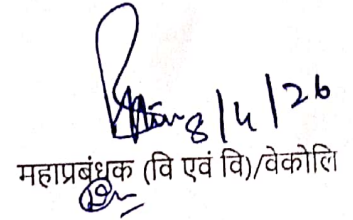 8/4/26
महाप्रबंधक (वि एवं वि)/वेकोलि